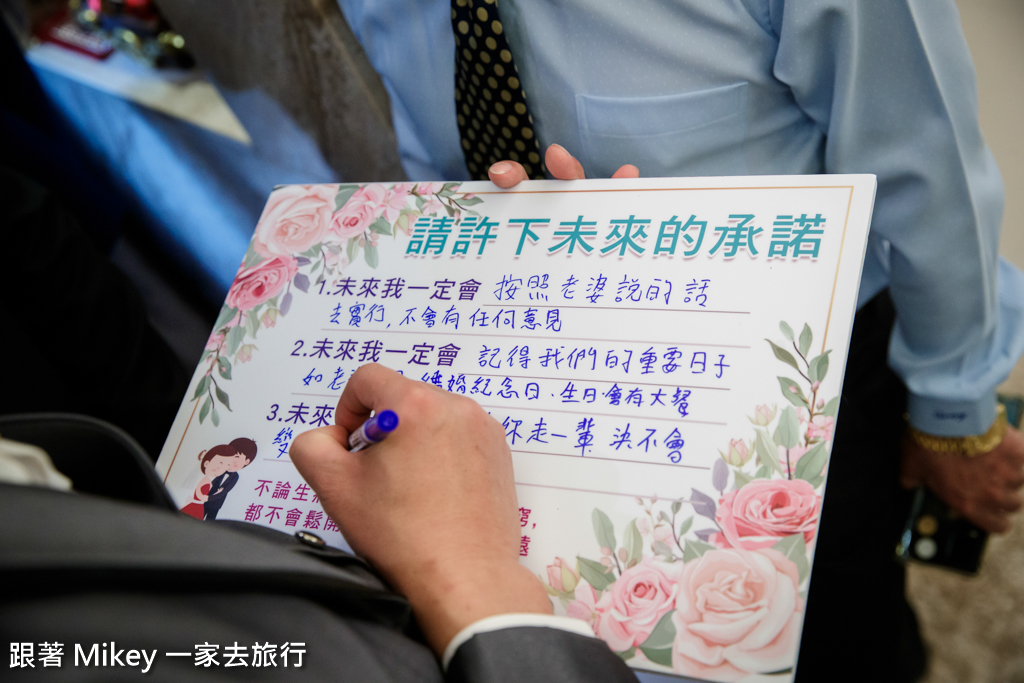 請許下未來的承諾
1.未來我一定會 按照老婆說的話
去實行,不會有任何意見
2.未來我一定會 記得我們的重要日子
如老 結婚紀念日、生日會有大餐
3.未來 你走一輩 決不會
不論生 窮,
都不會鬆開 遠
跟著 Mikey 一家去旅行